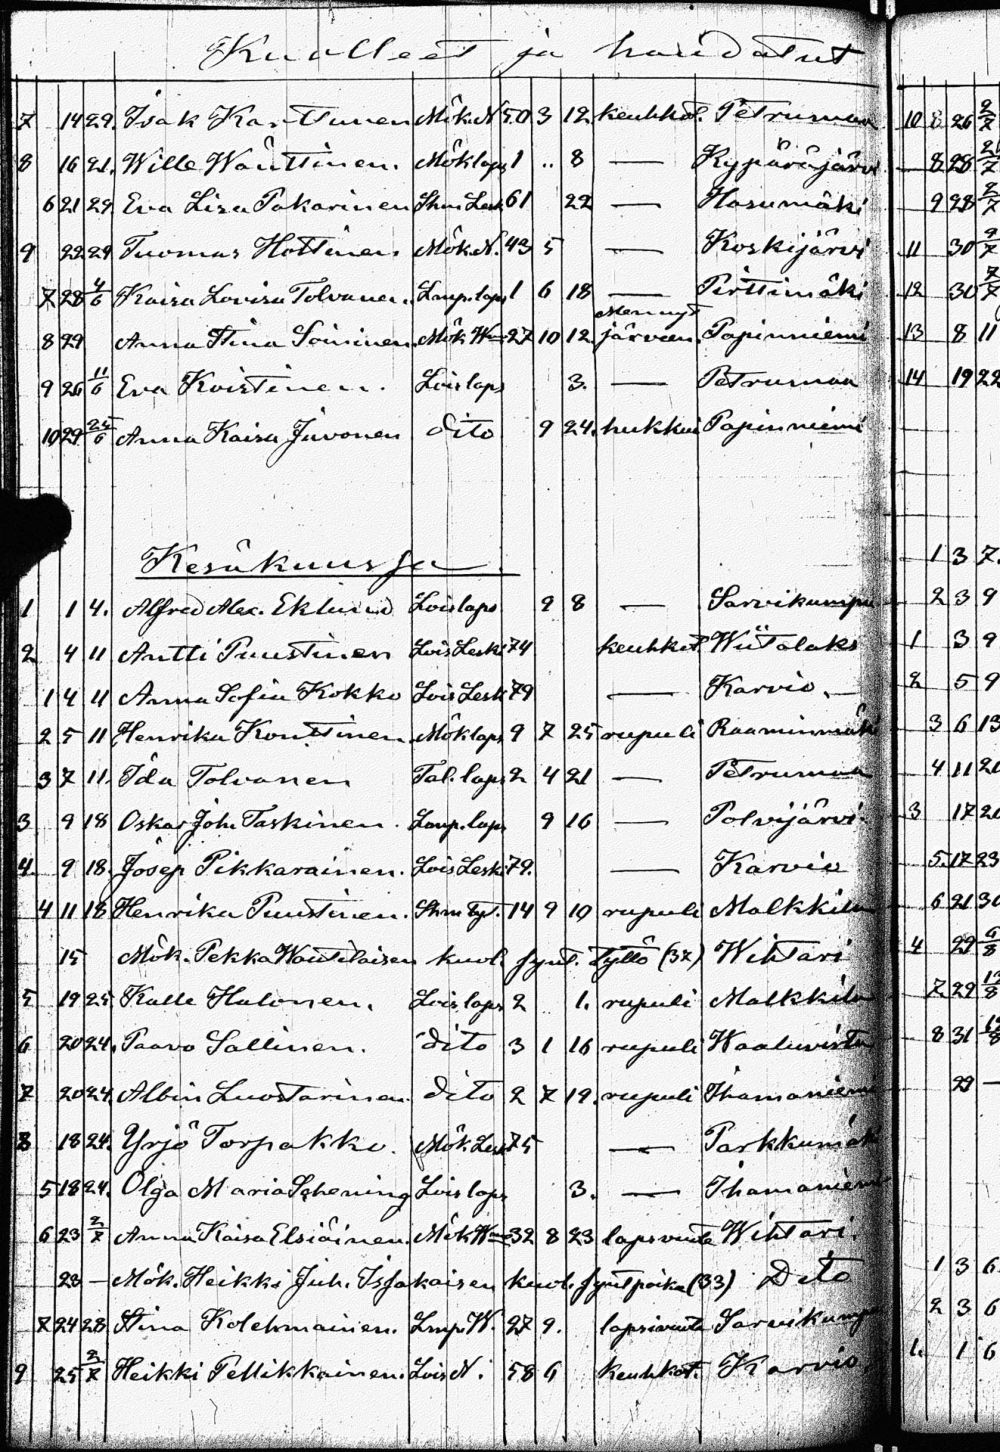 Kuolleet ja haudatut
7 14 29. Isak Karttunen Mök. N. 50 3 12. keuhkot. Petrumaa
8 16 21. Wille Wänttinen. Mök laps 1 .. 8 — Kypäräjärvi
6 21 29. Eva Lisa Pakarinen Lesk 61 22 — Hasumäki
9 22 29 Tuomas Hottinen Mök. N. 43 5 — Koskijärvi
7 28 4/6 Kaisa Lovisa Tolvanen. Lamp. laps 1 6 18 — Pirttimäki
8 29 Anna Stina Soininen Mök W 27 10 12. Mennyt järveen. Papinniemi
9 26 11/6 Eva Kvistinen. Lois laps 3. — Petrumaa
10 29 25/6 Anna Kaisa Juvonen dito 9 24. hukkui Papinniemi
Kesäkuussa
1 1 4. Alfred Alex. Eklund Lois laps 9 8 — Sarvikumpu
2 4 11 Antti Puustinen Lois Leski 74 keuhkot. Wiitalaks
1 4 11 Anna Sofia Kokko Lois Lesk 79 — Karvio. —
2 5 11 Henrika Konttinen Mök laps 9 7 25 rupuli
3 7 11. Ida Tolvanen Tal. laps 2 4 21 — Petrumaa
3 9 18 Oskar Joh. Taskinen. Lamp. laps 9 16 — Polvijärvi.
4. 9 18. Josep Pikkarainen. Lois Leski 79. — Karvio
4 11 18 Henrika Puustinen. 14 9 10 rupuli Malkkila
15 Mök. Pekka Wäntiläisen kuol. synt. tyttö (32) Wihtari
5 19 25 Kalle Halonen. Lois laps 2 1. rupuli Malkkila
6 20 24. Paavo Sallinen. dito 3 1 16 rupuli Waaluvirta
7 20 24. Albin Luostarinen dito 2 7 19. rupuli Ihamaniemi
8 18 24. Yrjö Torpakko. Mök. Lesk 75 — Parkkumäki
5 18 24. Olga Maria Schening Lois laps 3. — Ihamaniemi
6 23 2/7 Anna Kaisa Elsiäinen. Mök W 32 8 23 lapsivuote Wihtari.
23 — Mök. Heikki Juh. Issakaisen kuol. synt poika (33) Dito
7 24 28 Stina Kolehmainen. Lmp. W. 27 9. lapsivuote Sarvikumpu
9 25 2/7 Heikki Pellikkainen. Lois N. 58 6 keuhkot. Karvio
10 8 26 2/7
8 28
9 28 2/7
11 30 2/7
12 30 7/7
13 8 11
14 19 22
1 3 7.
2 3 9
1 3 9
2 5 9
3 6 13
4 11 20
3 17 20
5. 17 23
6 21 30
4 29 6/8
7 29 13/8
8 31
29 —
1 3 6
2 3 6
1. 1 6